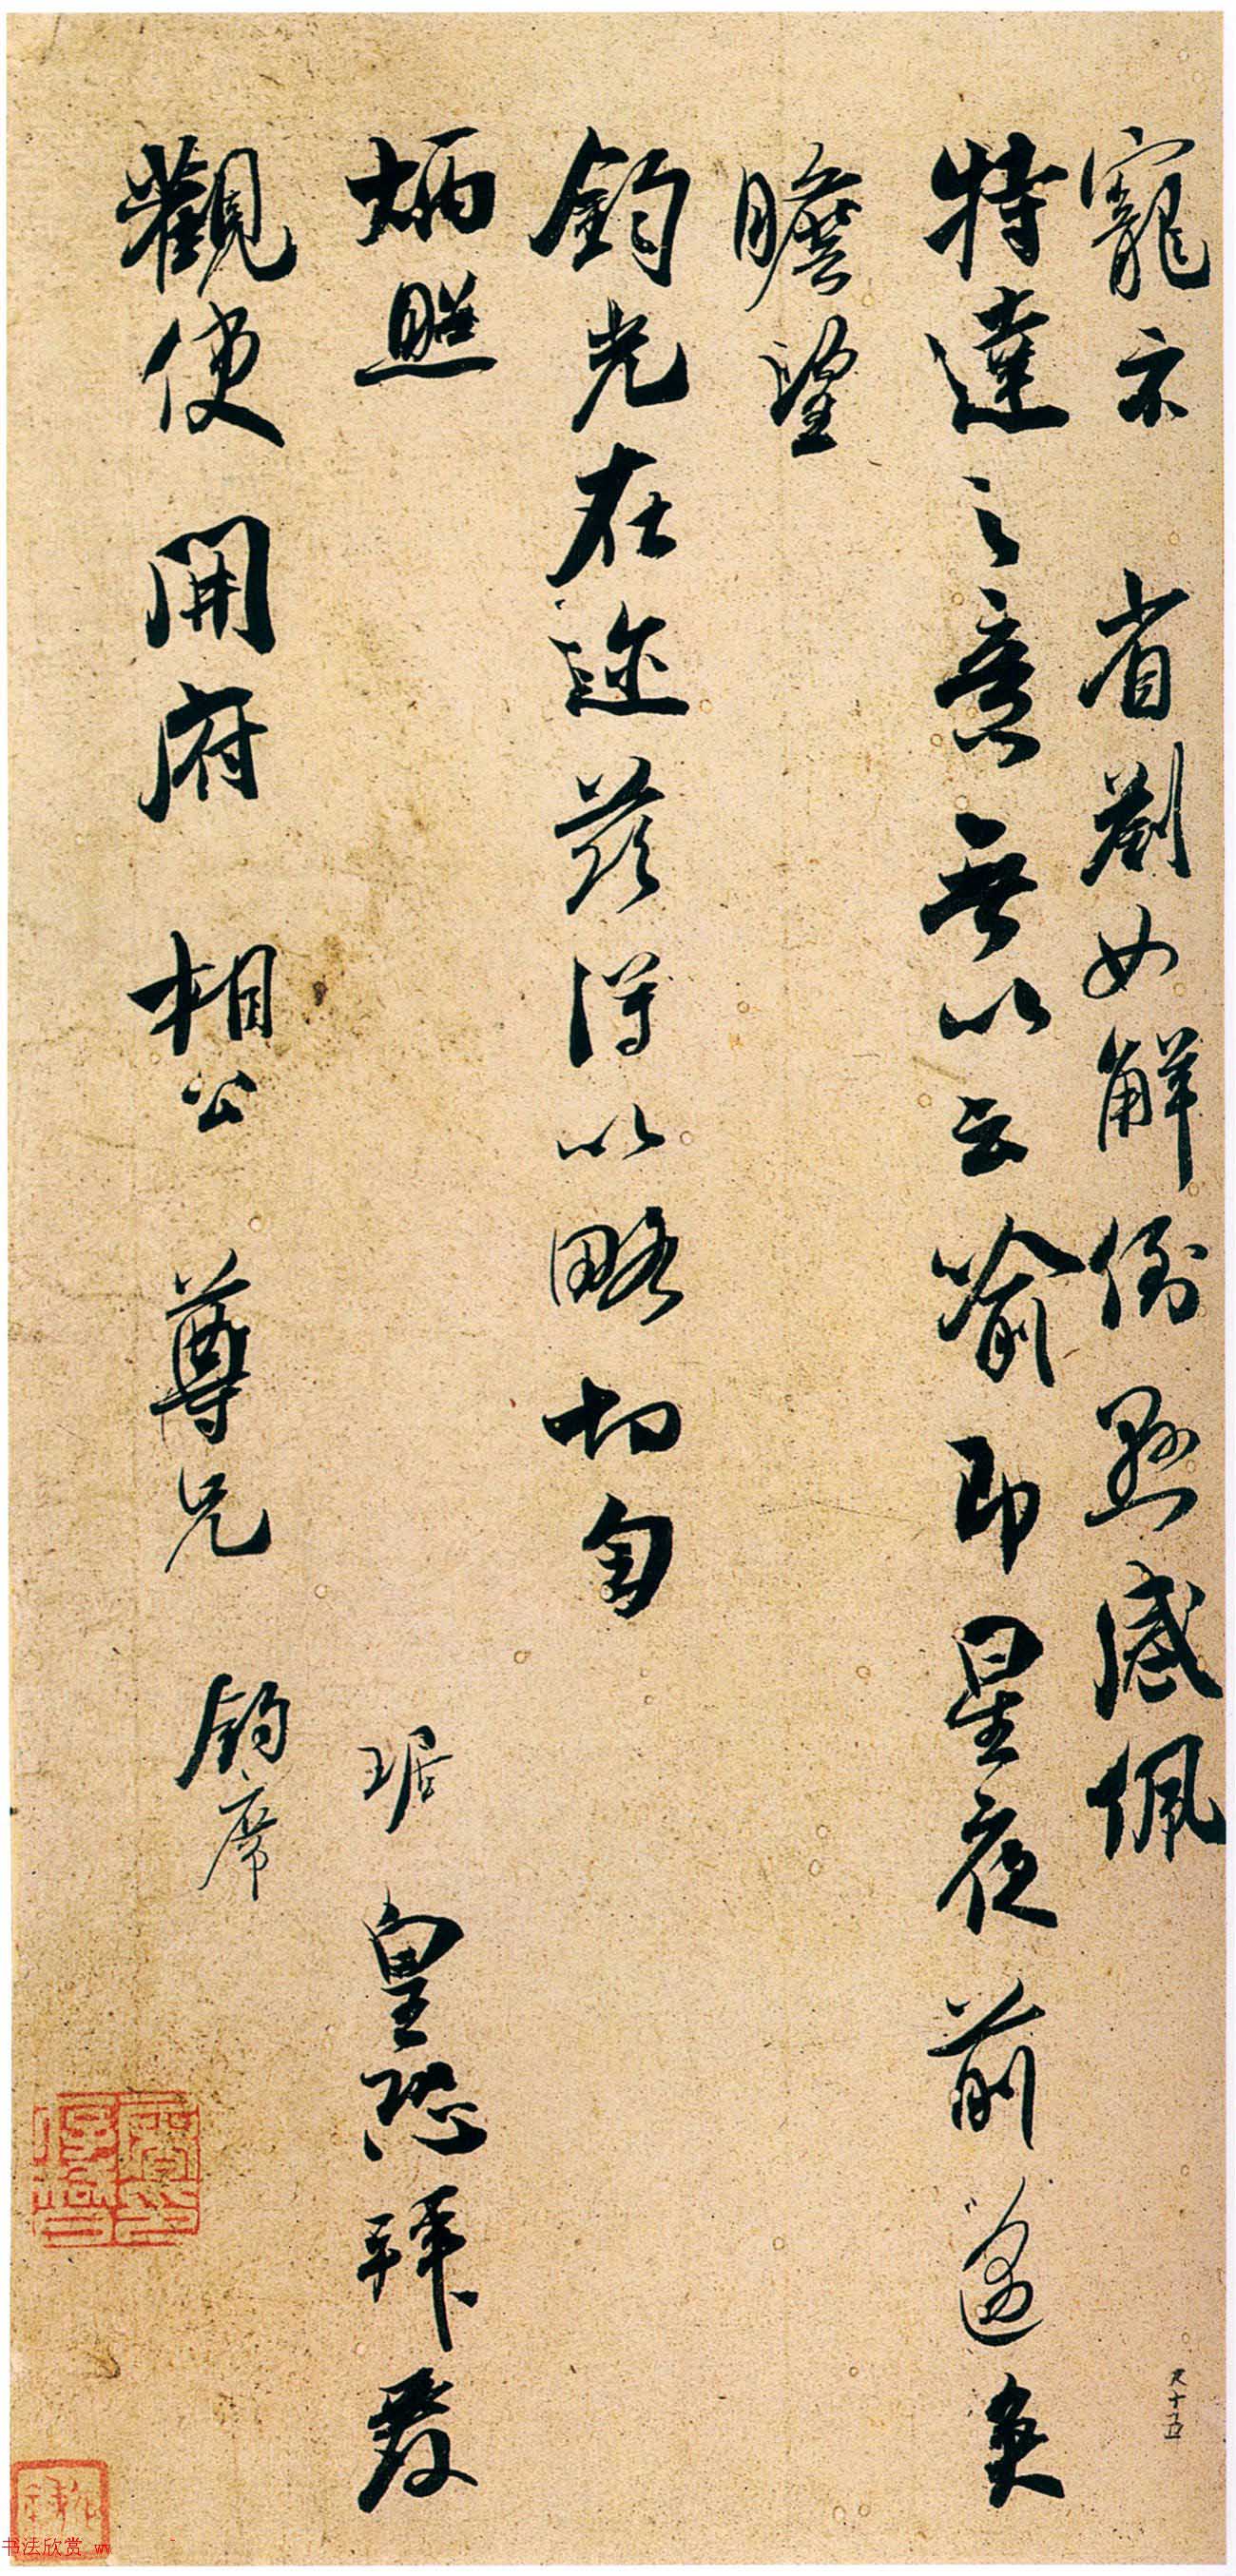 寵示 省劄如解倒懸感佩
特達之意無以云喻即星夜前邁矣
瞻望
鈞光在邇茲得以略切匄
炳照 琚皇恐拜覆
觀使開府 相公 尊兄 鈞席
十五
书法欣赏 ww